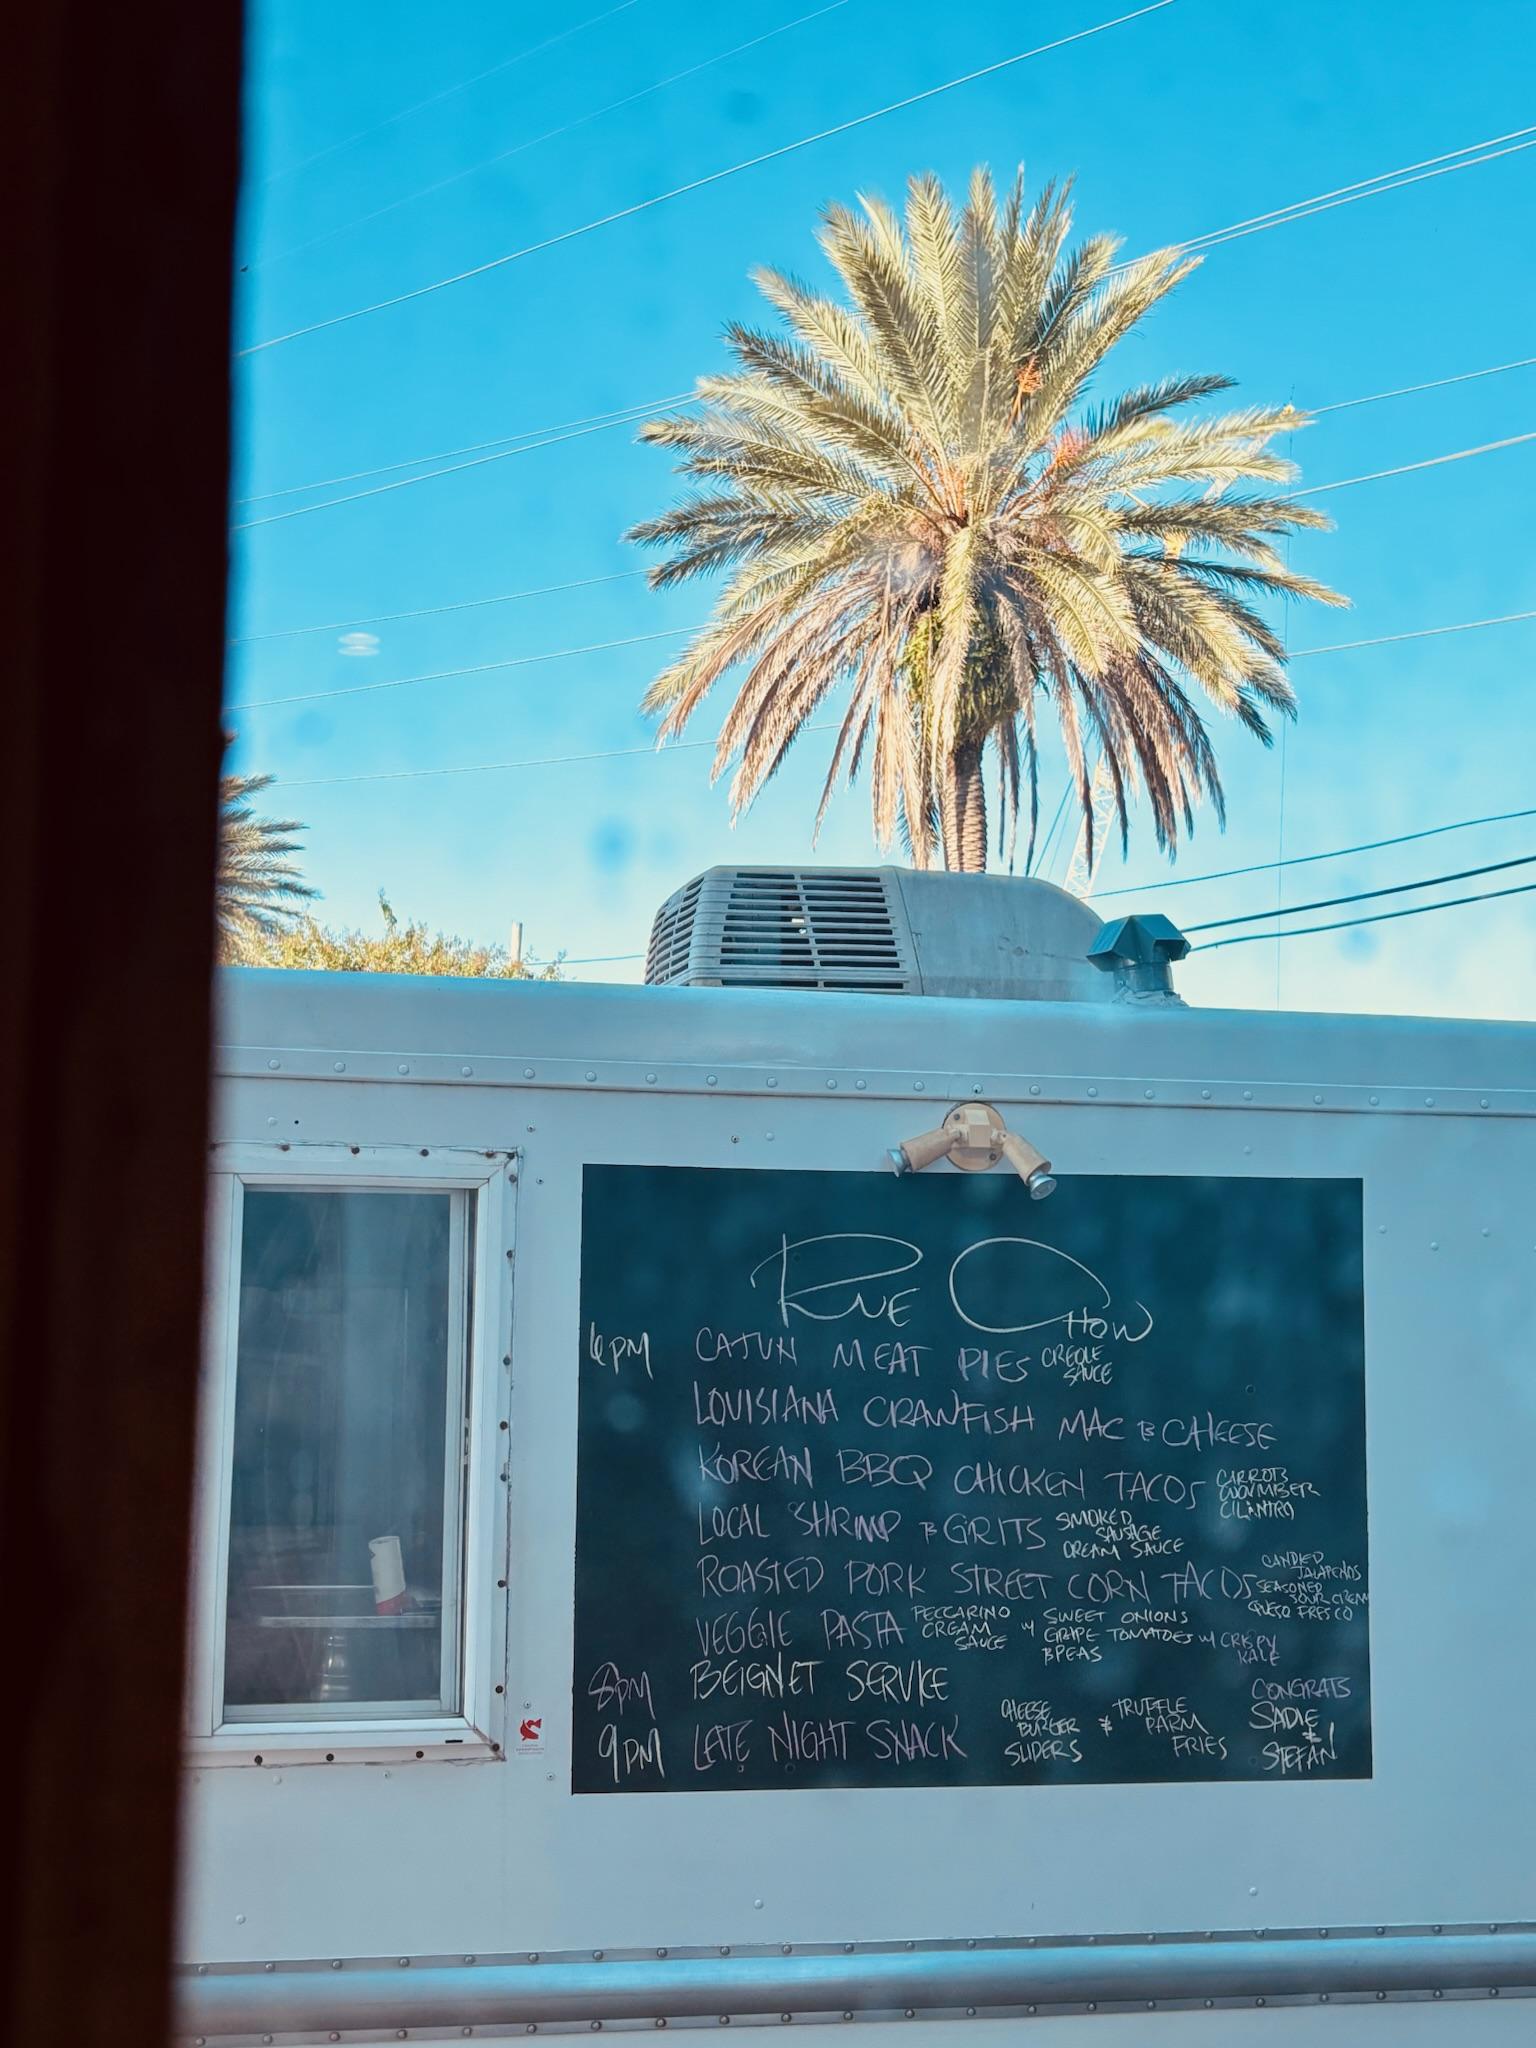 RUE CHOW
6PM CAJUN MEAT PIES CREOLE SAUCE
LOUISIANA CRAWFISH MAC & CHEESE
KOREAN BBQ CHICKEN TACOS CARROTS CUCUMBER CILANTRO
LOCAL SHRIMP & GRITS SMOKED SAUSAGE CREAM SAUCE
ROASTED PORK STREET CORN TACOS CANDIED JALAPENOS SEASONED SOUR CREAM QUESO FRESCO
VEGGIE PASTA PECCARINO CREAM SAUCE W/ SWEET ONIONS GRAPE TOMATOES BPEAS W/ CRISPY KALE
8PM BEIGNET SERVICE
9PM LATE NIGHT SNACK CHEESE BURGER SLIDERS & TRUFFLE PARM FRIES
CONGRATS
SADIE
&
STEFAN!